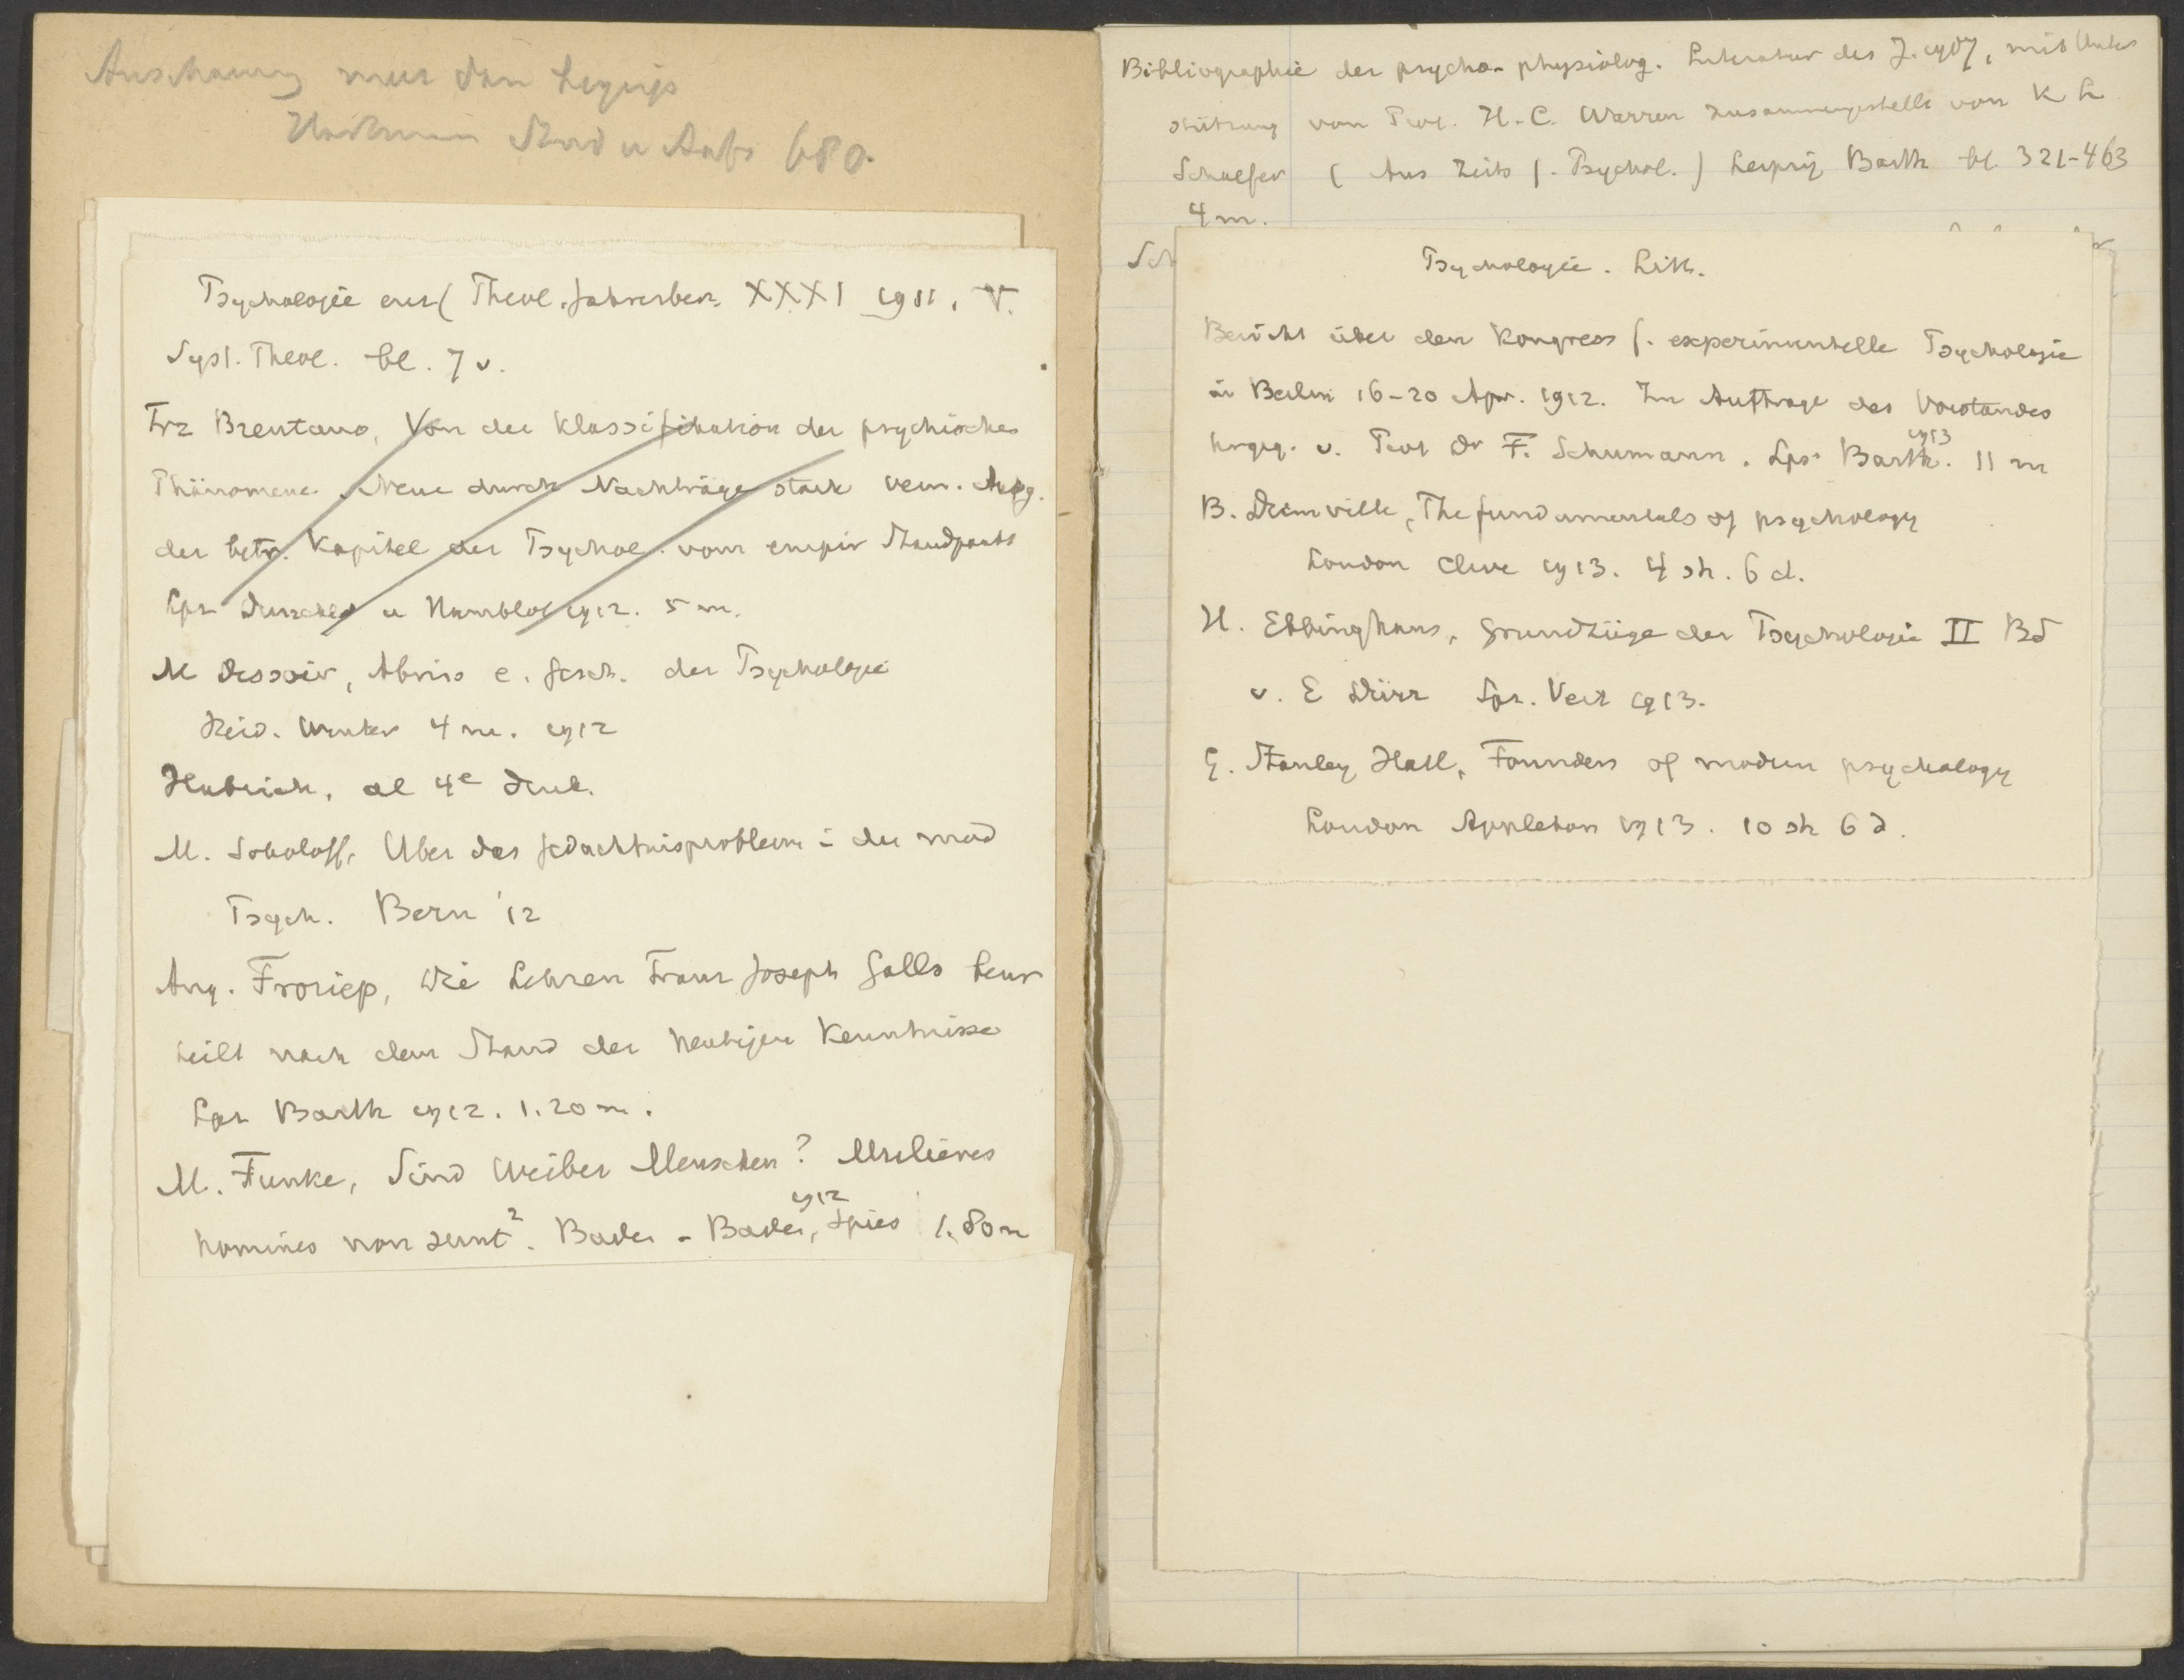 Anschauung
680.
Psychologie enz ( Theol. Jahresber. XXXI 1911, V.
Syst. Theol. bl. 7 v.
Frz Brentano, Von der Klassifikation der psychischen
Phänomene. Neue durch Nachträge stark verm. Ausg.
der betr. Kapitel der Psychol. vom empir Standpunkt
Lpz Duncker u Humblot 1912. 5 m.
M Dessoir, Abriss e. Gesch. der Psychologie
Heid. Winter 4 m. 1912
Hubrich, al 4e druk.
M. Sokoloff, Uber das Gedächtnisproblem i der mod
Psych. Bern '12
Aug. Froriep, Die Lehren Franz Joseph Galls beur
teilt nach dem Stand der heutigen Kenntnisse
Lpz Barth 1912. 1.20 m.
M. Funke, Sind Weiber Menschen? Mulieres
homines non sunt². Baden-Baden, Spies 1912 1.80 m
Bibliographie der psycho-physiolog. Literatur des J. 1907, mit Unter
stützung von Prof. H.C. Warren zusammengestellt von K L
Schaefer (Aus Zeits f. Psychol.) Leipzig Barth bl. 321-463
4 m.
Sch
Psychologie. Litt.
Bericht über den Kongress f. experimentelle Psychologie
in Berlin 16-20 Apr. 1912. Im Auftrage des Vorstandes
hrsgg. v. Prof Dr F. Schumann. Lpz Barth. 1913 11 m
B. Drumville, The fundamentals of psychology
London Clive 1913. 4 sh. 6 d.
H. Ebbinghaus, Grundzüge der Psychologie II Bd
v. E Dürr Lpz. Veit 1913.
G. Stanley Hall, Founders of modern psychology
London Appleton 1913. 10 sh 6 d.